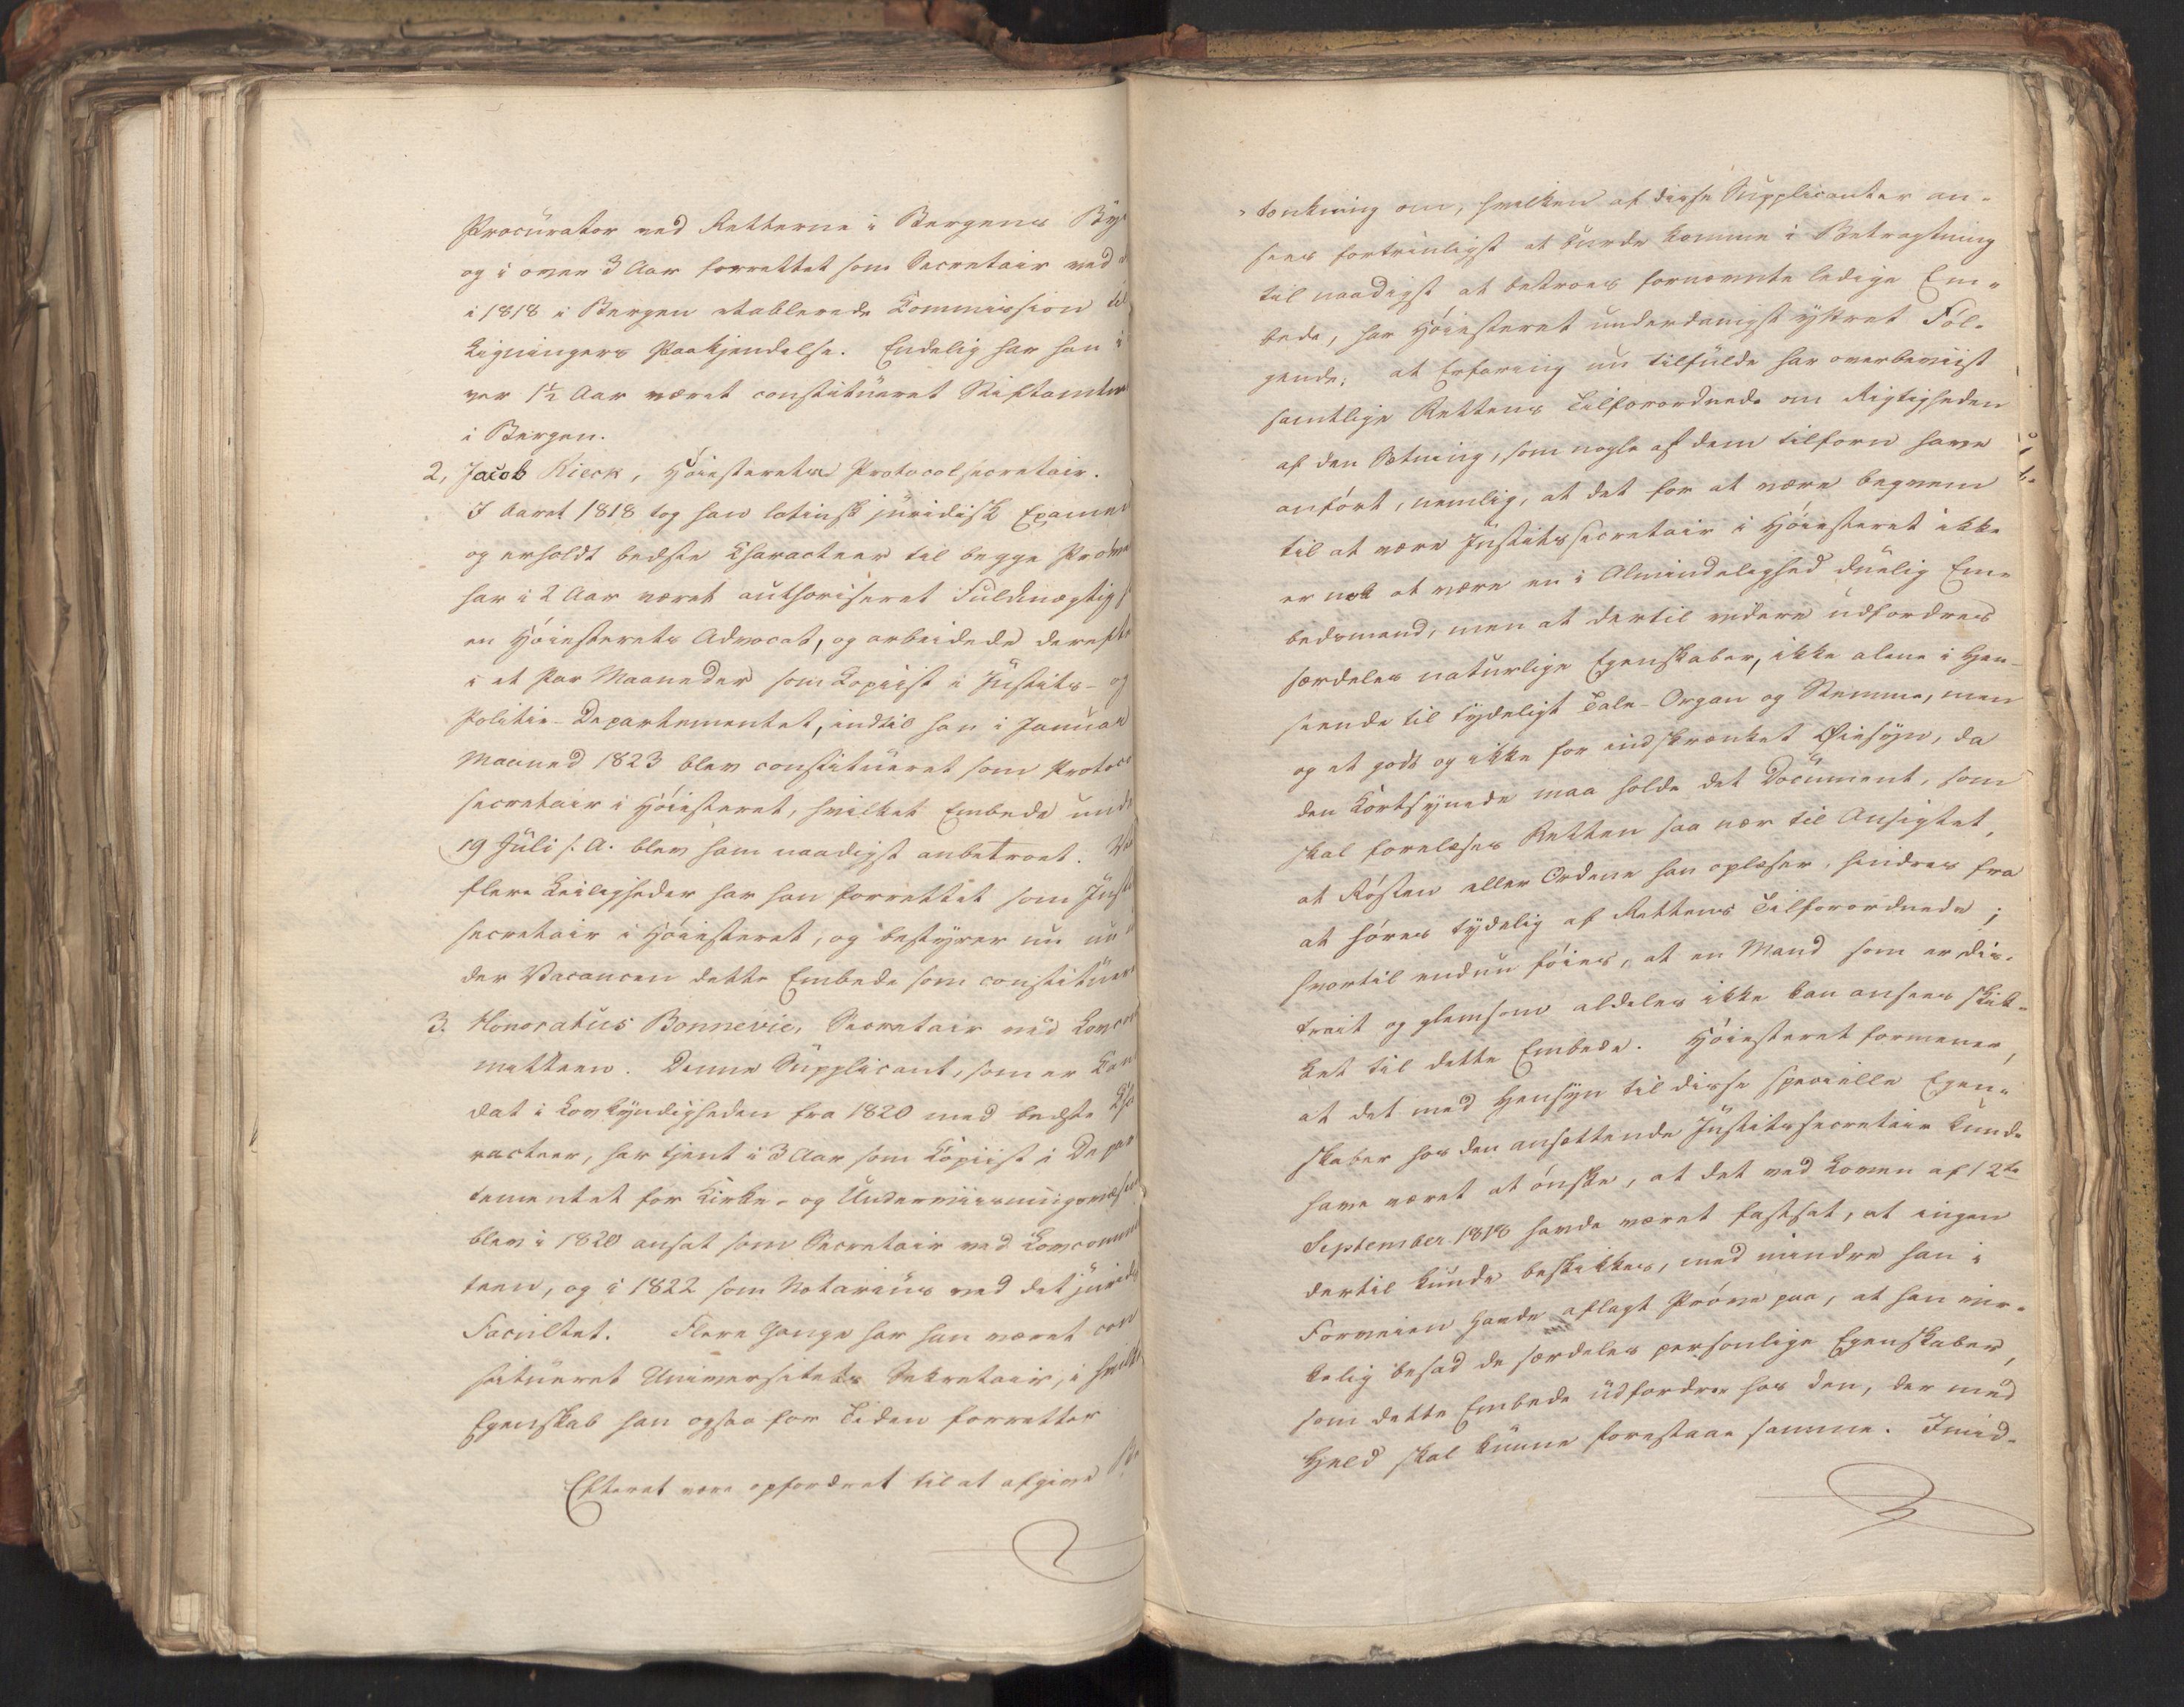 Procurator ved Retterne i Bergens Bye
og i over 3 Aar forrettet som Secretair ved
i 1818 i Bergen etablerede Kommission til
Ligningers Paakjendelse. Endelig har han i
ver 1½ Aar været constitueret Stiftamtm
i Bergen.
2, Jacob Kieck, Höiesterets Protocolsecretair.
I Aaret 1818 tog han latinsk juridisk Examen
og erholdt bedste Characteer til begge Pröve
har i 2 Aar været authoriseret Fuldmægtig
en Höiesterets Advocat, og arbeidede derefte
i et Par Maaneder som Copiist i Justits- og
Politie-Departementet, indtil han i Januar
Maaned 1823 blev constitueret som Protoco
secretair i Höiesteret, hvilket Embede und
19 Juli s. A. blev ham naadigst anbetroet. Ved
flere Leiligheder har han forrettet som Just
secretair i Höiesteret, og bestyrer nu un
der Vacancen dette Embede som constituer
3. Honoratus Bonnevie, Secretair ved Lovcom
mitteen. Denne Supplicant, som er Can
dat i Lovkyndigheden fra 1820 med bedste Cha
racteer, har tjent i 3 Aar som Copiist i Depar
tementet for Kirke- og Underviisningsvæsen
blev i 1820 ansat som Secretair ved Lovcommit
teen, og i 1822 som Notarius ved det jurid
Facultet. Flere Gange har han været con
stitueret Universitets Sekretair, i hvilk
Egenskab han ogsaa for Tiden forretter
Efterat være opfordret til at afgive Be
tænkning om, hvilken af disse Supplicanter an-
sees fortrinligst at burde komme i Betragtning
til naadigst at betroes fornævnte ledige Em-
bede, har Höiesteret underdanigst yttret Föl-
gende: at Erfaring nu tilfulde har overbeviist
samtlige Rettens Tilforordnede om Rigtigheden
af den Sætning, som nogle af dem tilforn have
anfört, nemlig, at det for at være beqvem
til at være Justitssecretair i Höiesteret ikke
er nok at være en i Almindelighed duelig Em-
bedsmand, men at dertil videre udfordres
særdeles naturlige Egenskaber, ikke alene i Hen-
seende til tydeligt Tale-Organ og Stemme, men
og et godt og ikke for indskrænket Øiesyn, da
den Kortsynede maa holde det Document, som
skal forelæses Retten saa nær til Ansigtet,
at Rösten eller Ordene han oplæser, hindres fra
at höres tydelig af Rettens Tilforordnede;
hvortil endnu föies, at en Mand som er dis-
trait og glemsom aldeles ikke kan ansees skik-
ket til dette Embede. Höiesteret formener,
at det med Hensyn til disse specielle Egen-
skaber hos den ansættende Justitssecretair kunde
have været at önske, at det ved Loven af 12te
September 1818 havde været fastsat, at ingen
dertil kunde beskikkes, med mindre han i
Forveien havde aflagt Pröve paa, at han vir-
kelig besad de særdeles personlige Egenskaber,
som dette Embede udfordrer hos den, der med
Held skal kunne forestaae samme. Imid-